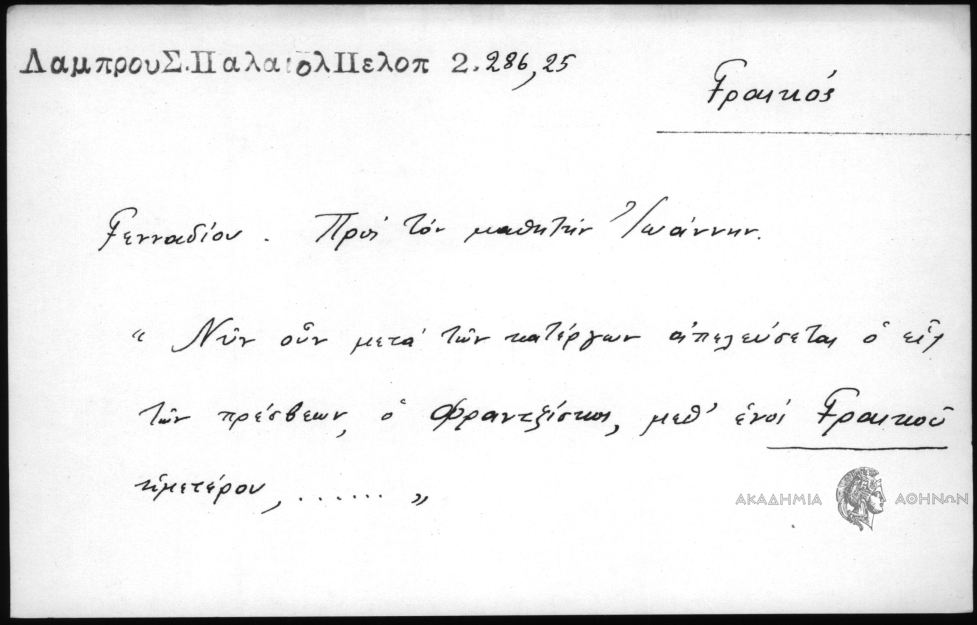 ΛαμπρουΣ.ΠαλαιολΠελοπ 2.286,25
Γραικός
Γενναδίου. Πρός τόν μαθητήν Ἰωάννην.
" Νῦν οὖν μετά τῶν κατέργων ἀπελεύσεται ὁ εἷς
τῶν πρέσβεων, ὁ Φραντζίσκος, μεθ' ἑνός Γραικοῦ
ἡμετέρου, ...... "
ΑΚΑΔΗΜΙΑ ΑΘΗΝΩΝ